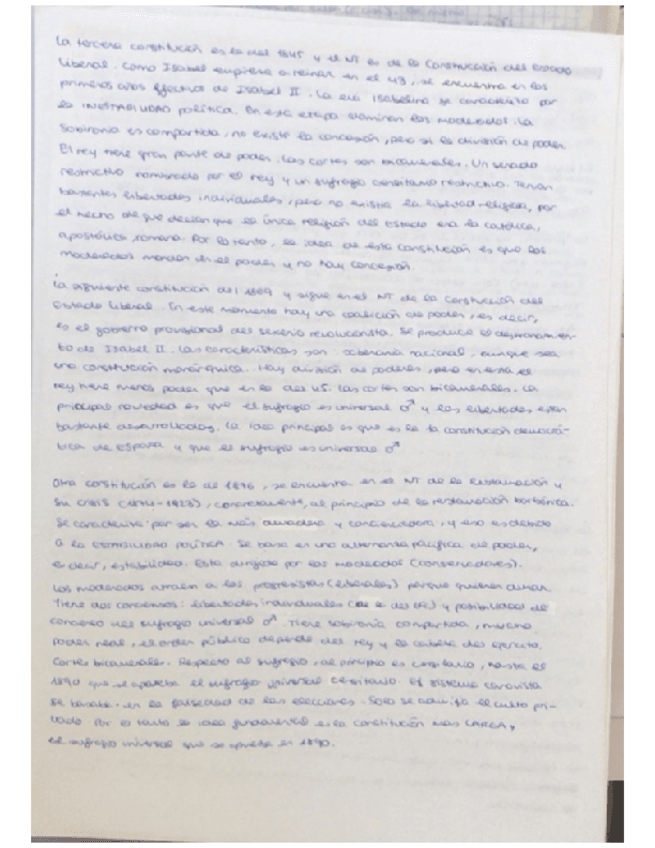 La tercera constitución es la del 1845 y el NT es de la Construcción del Estado
Liberal. Como Isabel empieza a reinar en el 43, se encuentra en los
primeros años efectivos de Isabel II. La era Isabelina se caracteriza por
la INESTABILIDAD política. En esta etapa dominan los moderados. La
Soberanía es compartida, no existe la concesión, pero sí la división de poder.
El rey tiene gran parte de poder. Las cortes son bicamerales. Un senado
restrictivo nombrado por el rey y un sufragio censitario restrictivo. Tenían
bastantes libertades individuales, pero no existía la libertad religiosa, por
el hecho de que decían que la única religión del Estado era la católica,
apostólica, romana. Por lo tanto, la idea de esta constitución es que los
moderados mandan en el poder y no hay concesión.
La siguiente constitución del 1869 y sigue en el NT de la Construcción del
Estado Liberal. En este momento hay una coalición de poder, es decir,
es el gobierno provisional del sexenio revolucionista. Se produce el destronamien-
to de Isabel II. Las características son: soberanía nacional, aunque sea
una constitución monárquica. Hay división de poderes, pero en esta el
rey tiene menos poder que en la del 45. Las cortes son bicamerales. La
principal novedad es que el sufragio es universal ♂ y las libertades están
bastante desarrolladas. La idea principal es que es la 1a constitución democrá-
tica de España y que el sufragio es universal ♂
Otra constitución es la de 1876, se encuentra en el NT de la Restauración y
su crisis (1874-1923), concretamente, al principio de la restauración borbónica.
Se caracteriza por ser la más duradera y conciliadora, y eso es debido
a la ESTABILIDAD POLÍTICA. Se basa en una alternancia pacífica de poder,
es decir, estabilidad. Está dirigida por los moderados (conservadores).
Los moderados atraen a los progresistas (liberales) porque quieren durar.
Tiene dos concesiones: libertades individuales ( de la del ) y posibilidad de
concesión del sufragio universal ♂. Tiene soberanía compartida, mucho
poder real, el orden público depende del rey y la cabeza del ejército.
Cortes bicamerales. Respecto al sufragio, al principio es censitario, hasta el
1890 que se aprueba el sufragio universal censitario. El sistema canovista
se basaba en la falsedad de las elecciones. Solo se admitía el culto pri-
vado. Por lo tanto la idea fundamental es la constitución más LARGA,
el sufragio universal que se aprueba en 1890.